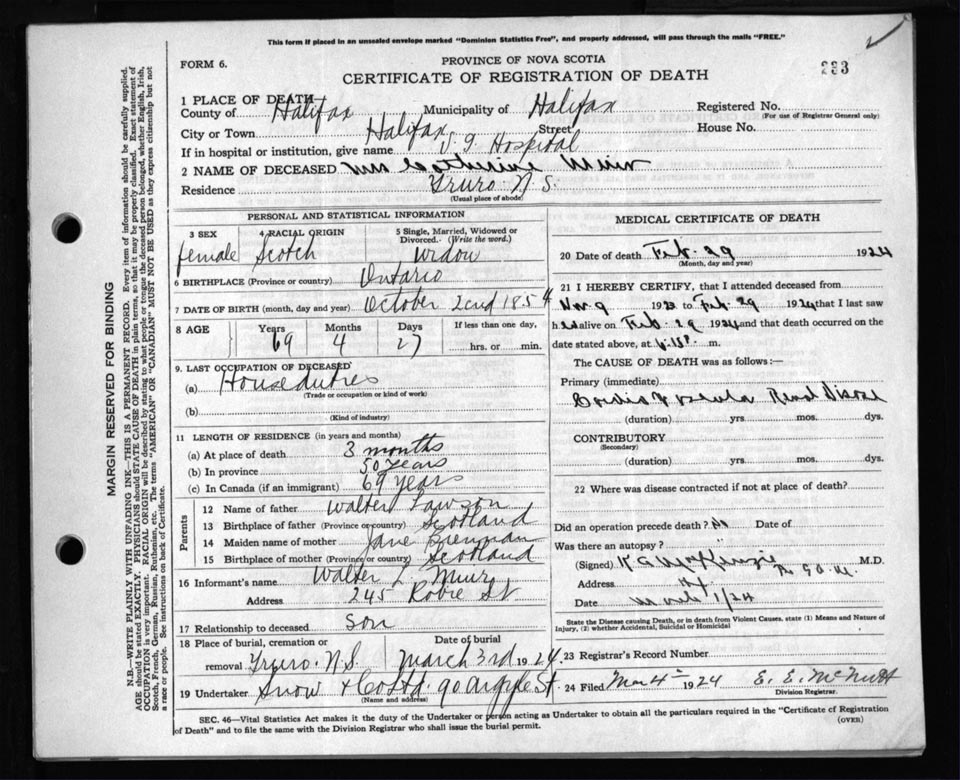 This form if placed in an unsealed envelope marked "Dominion Statistics Free", and properly addressed, will pass through the mails "FREE."
FORM 6.
PROVINCE OF NOVA SCOTIA
CERTIFICATE OF REGISTRATION OF DEATH
233
1 PLACE OF DEATH
County of Halifax Municipality of Halifax Registered No.
(For use of Registrar General only)
City or Town Halifax Street House No.
If in hospital or institution, give name V G Hospital
2 NAME OF DECEASED Mrs Catherine Muir
Residence Truro N.S.
(Usual place of abode)
PERSONAL AND STATISTICAL INFORMATION
3 SEX 4 RACIAL ORIGIN 5 Single, Married, Widowed or Divorced. (Write the word.)
female Scotch Widow
6 BIRTHPLACE (Province or country) Ontario
7 DATE OF BIRTH (month, day and year) October 2nd 1854
8 AGE Years Months Days If less than one day,
69 4 27 hrs. or min.
9. LAST OCCUPATION OF DECEASED
(a) House duties
(Trade or occupation or kind of work)
(b)
(Kind of industry)
11 LENGTH OF RESIDENCE (in years and months)
(a) At place of death 3 months
(b) In province 50 years
(c) In Canada (if an immigrant) 69 years
Parents
12 Name of father Walter Lawson
13 Birthplace of father (Province or country) Scotland
14 Maiden name of mother Jane Brennan
15 Birthplace of mother (Province or country) Scotland
16 Informant's name Walter L Muir
Address 245 Robie St
17 Relationship to deceased Son
18 Place of burial, cremation or removal Truro. N.S. Date of burial March 3rd 1924.
19 Undertaker Snow & Co Ltd. 90 Argyle St.
(Name and address)
MEDICAL CERTIFICATE OF DEATH
20 Date of death Feb. 29 1924
(Month, day and year)
21 I HEREBY CERTIFY, that I attended deceased from
Nov 9 1923 to Feb. 29 1924 that I last saw
her alive on Feb. 29 1924 and that death occurred on the
date stated above, at m.
The CAUSE OF DEATH was as follows:—
Primary (immediate)
Cardio Vascular Renal Disease
(duration) yrs. mos. dys.
CONTRIBUTORY
(Secondary)
(duration) yrs. mos. dys.
22 Where was disease contracted if not at place of death?
Did an operation precede death? No Date of
Was there an autopsy? "
(Signed) K A MacKenzie M.D.
Address Hfx
Date March 1/24
State the Disease causing Death, or in death from Violent Causes, state (1) Means and Nature of
Injury, (2) whether Accidental, Suicidal or Homicidal
23 Registrar's Record Number
24 Filed Mar 4th 1924 E. E. McNutt
Division Registrar.
SEC. 46—Vital Statistics Act makes it the duty of the Undertaker or person acting as Undertaker to obtain all the particulars required in the "Certificate of Registration
of Death" and to file the same with the Division Registrar who shall issue the burial permit.
(OVER)
MARGIN RESERVED FOR BINDING
N.B.—WRITE PLAINLY WITH UNFADING INK—THIS IS A PERMANENT RECORD. Every item of information should be carefully supplied.
AGE should be stated EXACTLY. PHYSICIANS should STATE CAUSE OF DEATH in plain terms, so that it may be properly classified. Exact statement of
OCCUPATION is very important. RACIAL ORIGIN will be described by stating to what people or tongue the deceased person belonged, whether English, Irish,
Scotch, French, German, Russian, Ruthenian, etc. The terms "AMERICAN" OR "CANADIAN" MUST NOT BE USED as they express citizenship but not
a race or people. See instructions on back of Certificate.